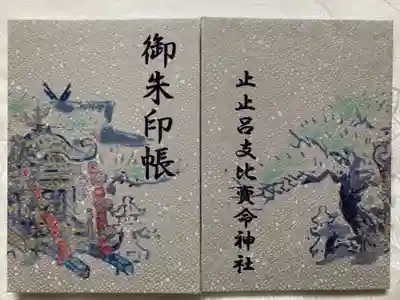 御朱印帳
止止呂支比賣命神社